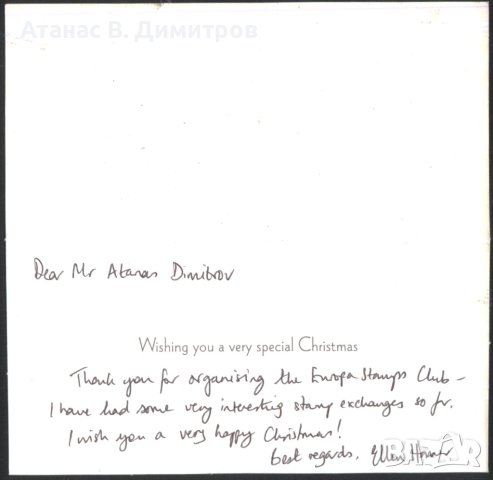 Атанас В. Димитров
Dear Mr Atanas Dimitrov
Wishing you a very special Christmas
Thank you for organising the Europa Stamps Club –
I have had some very interesting stamp exchanges so far.
I wish you a very happy Christmas!
best regards, Ellen
БАZАР